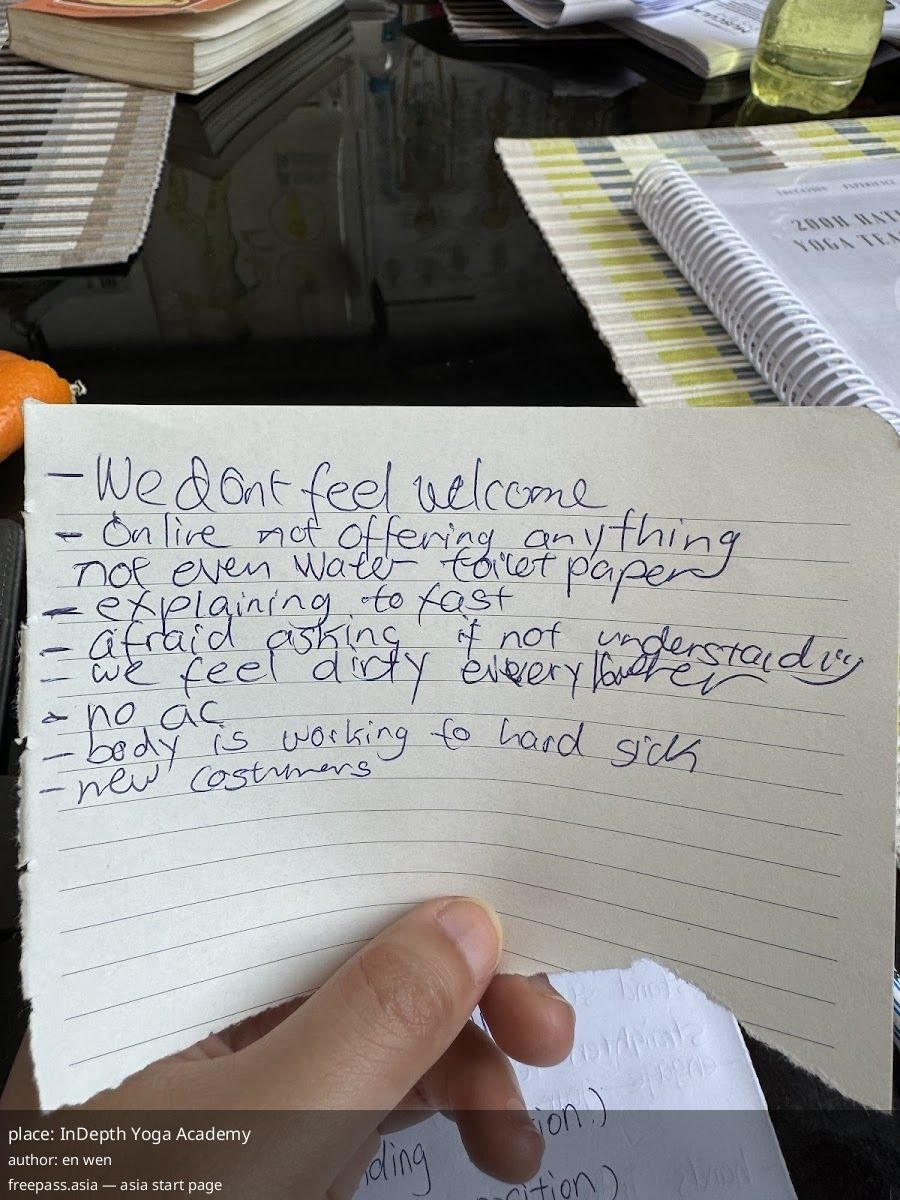 EDUCATION EXPERIENCE
200H HAT
YOGA TEA
- We dont feel welcome
- Onlire not offering anything
not even water toilet paper
- explaining to fast
- afraid asking if not understanding
- we feel dirty every
- no ac
- body is working to hard sick
- new costumers
stand
straighten
engage
hands
ion.)
ding
ition)
place: InDepth Yoga Academy
author: en wen
freepass.asia — asia start page